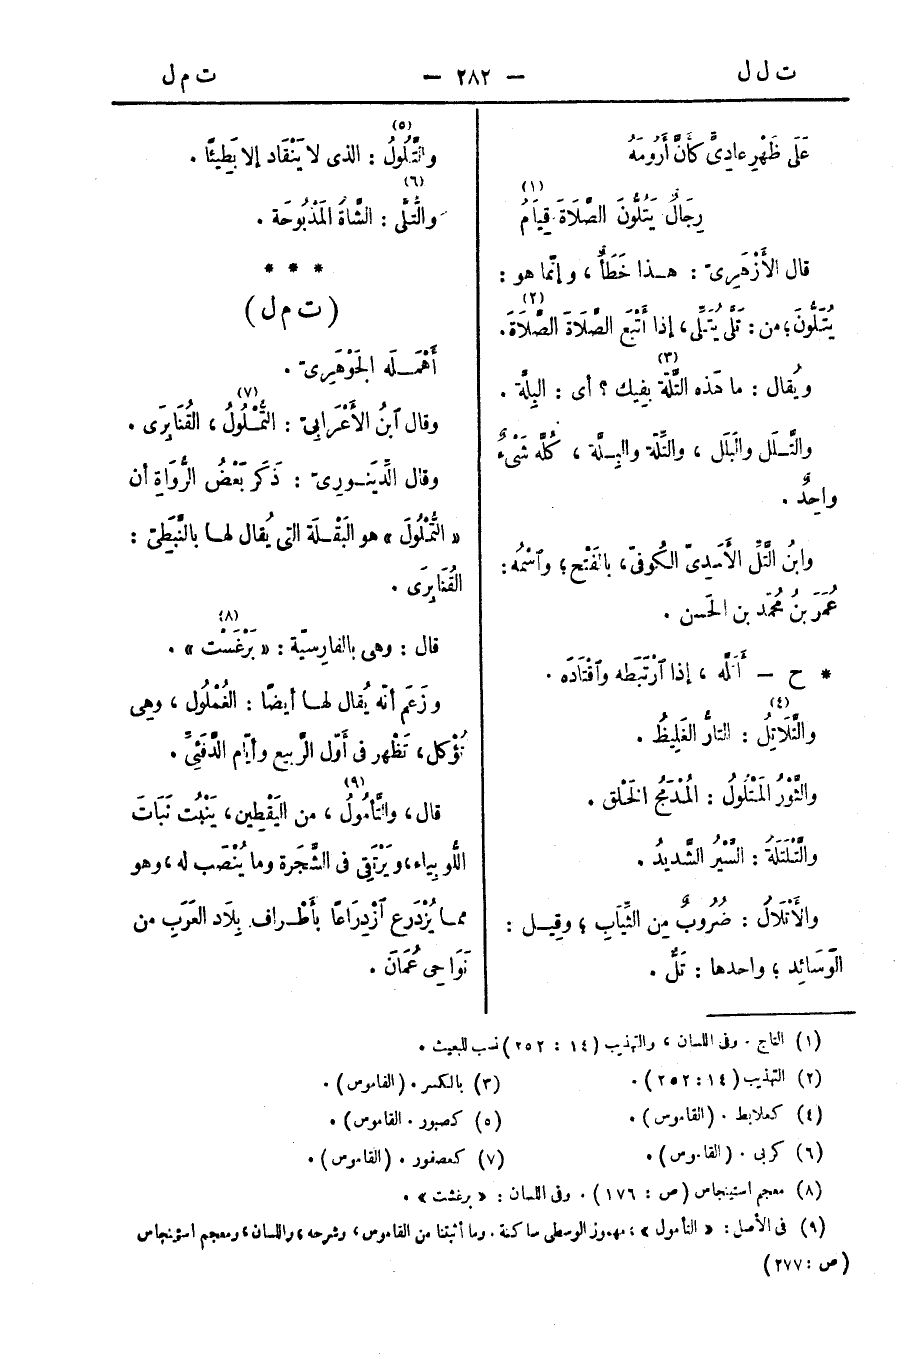 ت ل ل — ٢٨٢ — ت م ل
عَلَى ظَهْرِ عَادِىٍّ كَأَنَّ أَرُومَهُ
رِجَالٌ يَتُلُّونَ الصَّلَاةَ قِيَامُ (١)
قال الأَزْهَرِىّ : هـذا خَطَأٌ ، وإنّما هو :
يُتَلُّونَ؛ من : تَلَّى يُتَلِّى ، إذا أَتْبَع الصَّلاةَ الصَّلاةَ. (٢)
ويُقال : ما هَذه التِّلَّة بِفِيك ؟ أى : البِلَّة . (٣)
والتَّـلَل والبَلَل ، والتِّلَّة والبِـلَّة ، كُلّه شَىْءٌ
واحِدٌ .
وابنُ التَّلِّ الأَسَدِىّ الكُوفِىّ ، بالفَتْح ؛ وٱسْمُه :
عُمَرَ بنُ مُحمّد بن الحَسن .
* ح — أَتَلَّه ، إذا ٱرْتَبَطه وٱقْتَادَه .
والتُّلَاتِلُ : التارُّ الغَلِيظُ . (٤)
والثَّوْرُ المَتْلُولُ : المُدْمَجُ الخَلْق .
والتَّلْتَلَةُ : السَّيْرُ الشَّدِيدُ .
والأَتْلَالُ : ضُرُوبٌ مِن الثِّيَابِ ؛ وقِيـل :
الوَسَائِد ؛ واحدها : تَلٌّ .
والتَّلُولُ : الذى لا يَنْقَاد إلا بَطِيئًا . (٥)
والتُّلَّى : الشَّاةُ المَذْبُوحَة . (٦)
* * *
( ت م ل )
أَهْمَـلَه الجَوْهَرِىّ .
وقال ٱبنُ الأَعْرَابِىّ : التُّمْلُولُ ، القُنَابِرَى . (٧)
وقال الدِّينَـوَرِىّ : ذَكَر بَعْضُ الرُّوَاةِ أن
« التُّمْلُولَ » هو البَقْـلَة التى يُقال لهـا بالنَّبَطِىّ :
القُنَابِرَى .
قال : وهى بالفارِسِيّة : « بَرْغَسْت » . (٨)
وزَعَم أنّه يُقال لهـا أيضًا : الغُمْلُول ، وهى
تُؤْكل ، تَظْهر فى أوّل الرَّبيع وأيّام الدَّفَئِىِّ .
قال ، والتَّأمُولُ ، من اليَقْطِين ، يَنْبُت نَبَاتَ (٩)
اللُّوبِيَاء ، ويَرْتَقِى فى الشَّجَرة وما يُنْصَب له ، وهو
ممـا يُزْدَرع ٱزْدِرَاعًا بأَطْـراف بِلَاد العَرَب من
نَوَاحِى عُمَانَ .
(١) التاج . وفى اللسان ، والتهذيب (١٤ : ٢٥٢) نسب للبعيث .
(٢) التهذيب (١٤ : ٢٥٢) . (٣) بالكسر . (القاموس) .
(٤) كعلابط . (القاموس) . (٥) كصبور . القاموس) .
(٦) كربى . (القاموس) . (٧) كعصفور . (القاموس) .
(٨) معجم استينجاس (ص : ١٧٦) . وفى اللسان : « برغشت » .
(٩) فى الأصل : « التأمول » ، مهموز الوسطى ساكنة . وما أثبتنا من القاموس ، وشرحه ، واللسان ، ومعجم استينجاس
(ص : ٢٧٧)